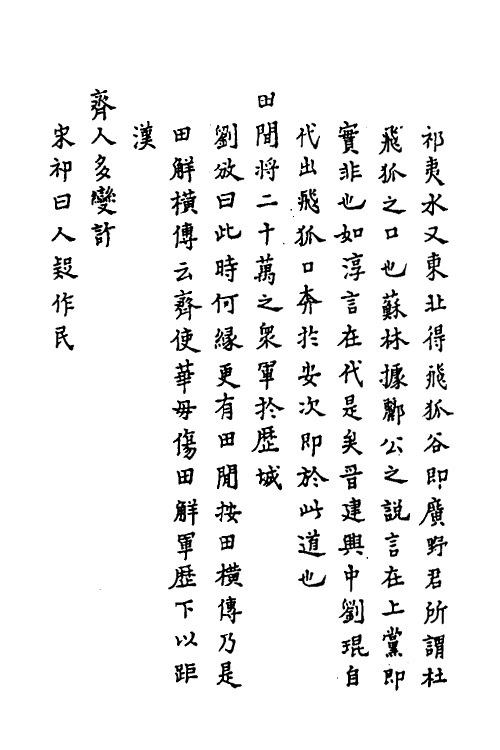 祁夷水又東北得飛狐谷即廣野君所謂杜
飛狐之口也蘇林據酈公之説言在上黨即
實非也如淳言在代是矣晉建興中劉琨自
代出飛狐口奔扵安次即於此道也
田間将二十萬之衆軍扵歴城
劉攽曰此時何縁更有田閒按田橫傳乃是
田解橫傳云齊使華毋傷田解軍歴下以距
漢
齊人多變計
宋祁曰人疑作民